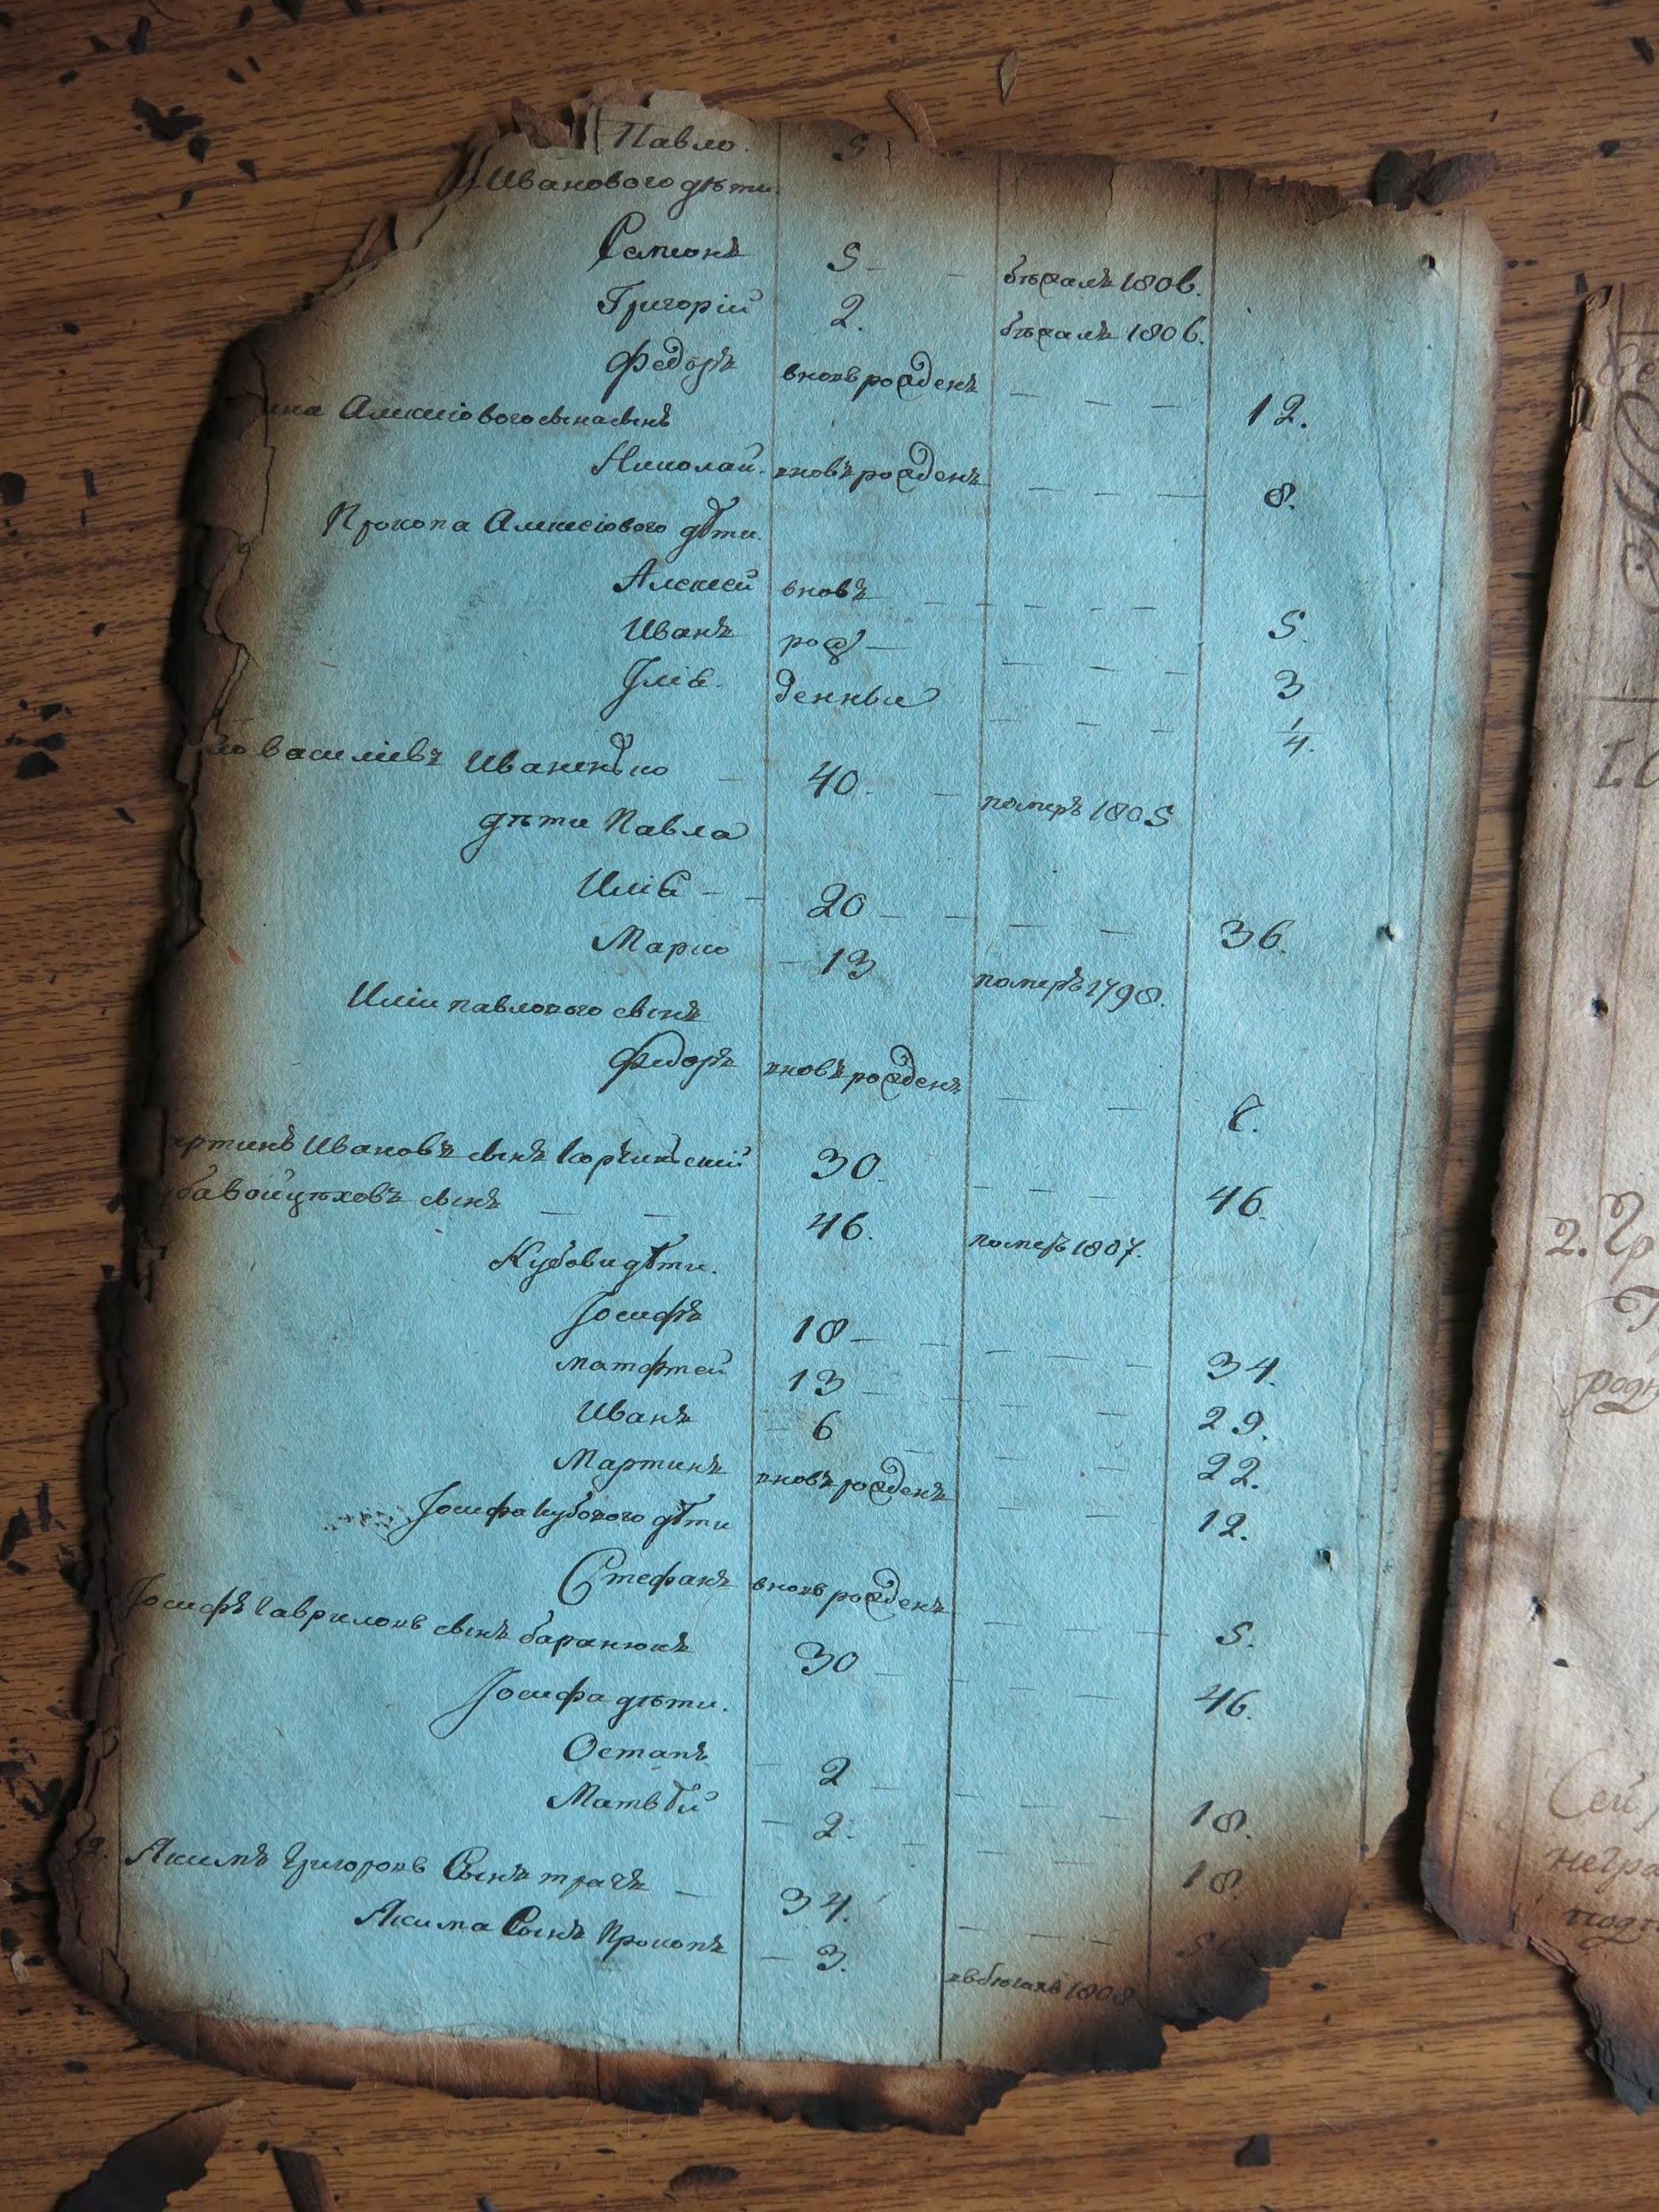 Павло. 5
Иванового дѣти.
Семионъ 5 - - бѣжалъ 1806.
Григорій 2. бѣжалъ 1806.
Федоръ вновь рожденъ - - - 12.
Алексіового сына сынъ
Николай - вновъ рожденъ - - - 8.
Прокопа Алексіового дѣти.
Алексей вновъ - - - - - 5.
Иванъ рож - - - - 3
Ілія. денныи - - - 1/4.
Василіевъ Иваненько - 40 - померъ 1805
дѣти Павла
Илія - - 20 - - - - 36.
Марко - 13 померъ 1798.
Иліи павлового сынъ
Федоръ вновъ рожденъ - -
артинъ Ивановъ сынъ 30 - - - 46.
бавойцѣховъ сынъ - - 46. померъ 1807.
Кубови дѣти.
Іосифъ 18 - - - - - - 34.
матфтей 13 - - - 29.
Иванъ - 6 - - - 22.
Мартинъ вновъ рожденъ - - - 12.
Іосифа кубового дѣти
Стефанъ вновь рожденъ - - - 5.
Іосифъ Гавриловъ сынъ баранюкъ 30 - - - - 46.
Іосифа дѣти.
Остапъ - 2 - - - - 18.
Матвѣй - 2. - - - - 18.
Акимъ Григоровъ Сынъ трачъ - 34. - - -
Акима Сынъ Прокопъ - 3. 1808